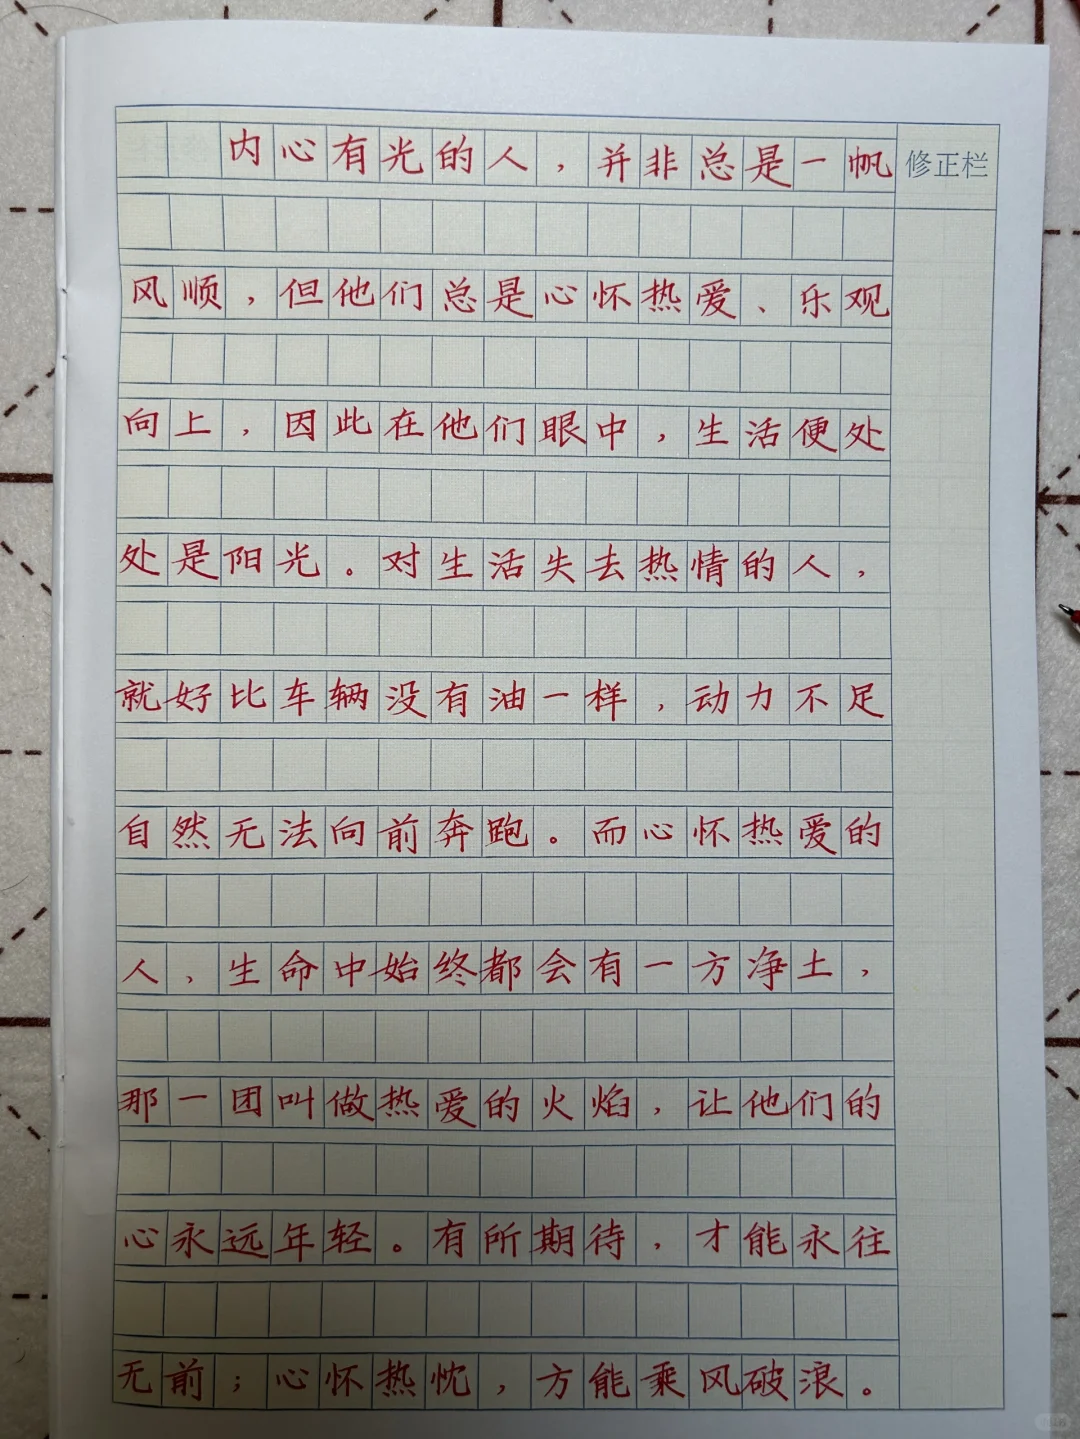 内心有光的人，并非总是一帆
修正栏
风顺，但他们总是心怀热爱、乐观
向上，因此在他们眼中，生活便处
处是阳光。对生活失去热情的人，
就好比车辆没有油一样，动力不足
自然无法向前奔跑。而心怀热爱的
人，生命中始终都会有一方净土，
那一团叫做热爱的火焰，让他们的
心永远年轻。有所期待，才能永往
无前；心怀热忱，方能乘风破浪。